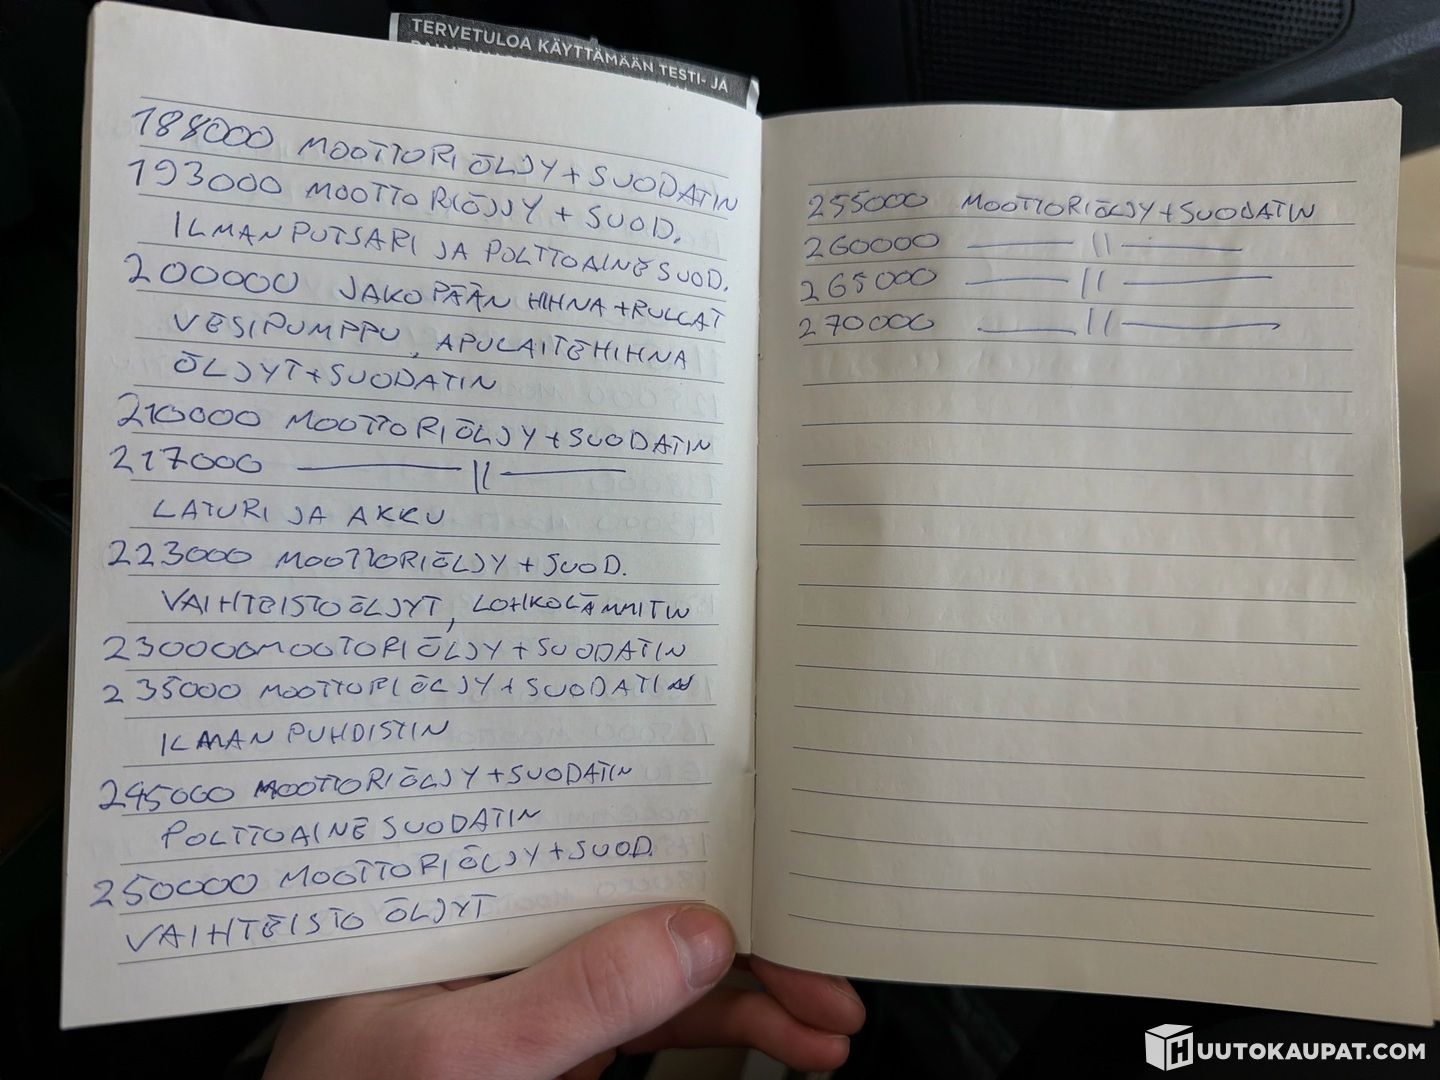 TERVETULOA KÄYTTÄMÄÄN TESTI- JA
188000 MOOTTORIÖLJY + SUODATIN
193000 MOOTTORIÖJJY + SUOD.
ILMANPUTSARI JA POLTTOAINE SUOD.
200000 JAKOPÄÄN HIHNA + RULLAT
VESIPUMPPU, APULAITEHIHNA
ÖLJYT + SUODATIN
210000 MOOTTORIÖLJY + SUODATIN
217000 —— 11 ——
LATURI JA AKKU
223000 MOOTTORIÖLJY + SUOD.
VAIHTEISTOÖLJYT, LOHKOLÄMMITIN
230000 MOOTORI ÖLJY + SUODATIN
235000 MOOTTORIÖLJY + SUODATIN
ILMAN PUHDISTIN
245000 MOOTTORIÖLJY + SUODATIN
POLTTOAINE SUODATIN
250000 MOOTTORIÖLJY + SUOD.
VAIHTEISTO ÖLJYT
255000 MOOTTORIÖLJY + SUODATIN
260000 —— 11 ——
265000 —— 11 ——
270000 —— 11 ——
HUUTOKAUPAT.COM